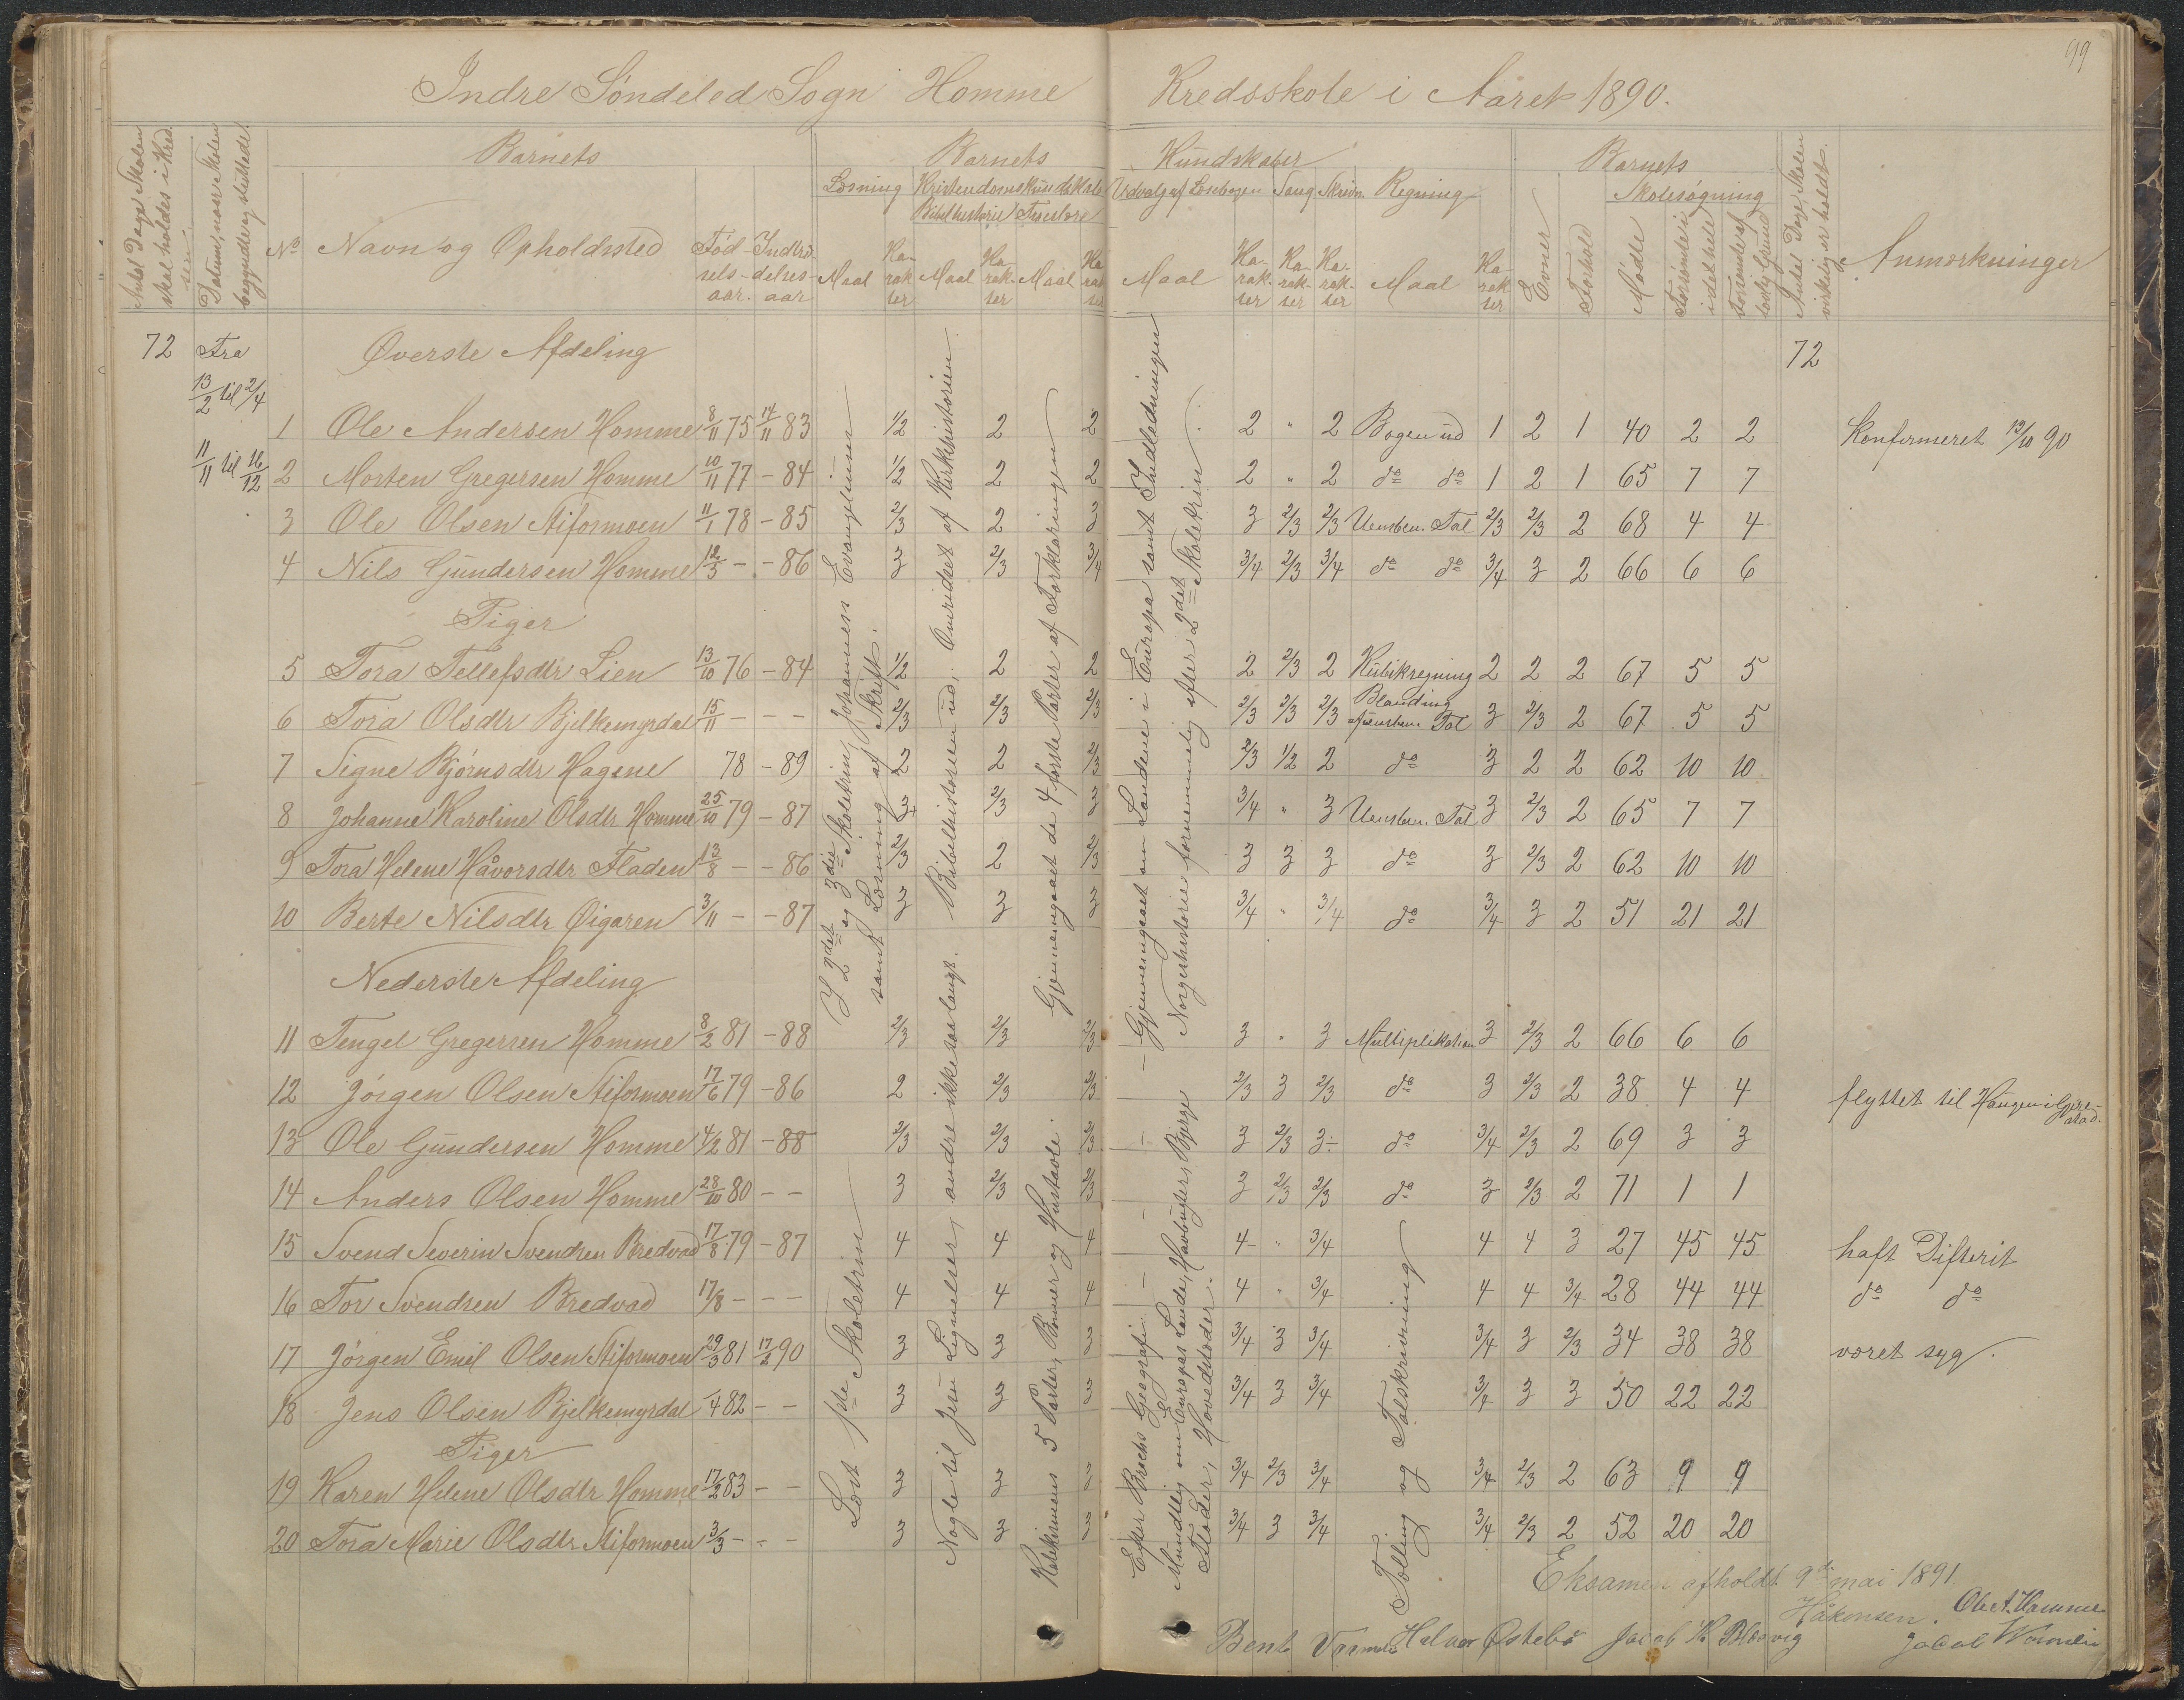 99
Indre Søndeled Sogn Homme Kredsskole i Aaret 1890.
Antal Dage Skolen skal holdes i Kredsen.
Datum, naar Skolen begyndte og sluttede.
Barnets
No Navn og Opholdssted
Fødselsaar.
Indtrædelsesaar
Barnets Kundskaber
Læsning Kristendomskundskab Udvalg af Læsebogen Sang Skrivn. Regning
Bibelhistorie Troeslære
Maal Karakter Maal Karakter Maal Karakter Maal Karakter Karakter Karakter Maal Karakter
Barnets
Evner Forhold
Skolesøgning
Møde
Forsømte i det hele
Forsømte af lovlig Grund
Antal Dage, Skolen virkelig er holdt.
Anmærkninger
72 Fra 13/2 til 2/4
11/11 til 16/12
Øverste Afdeling 72
1 Ole Andersen Homme 8/11 75 14/11 83 1/2 2 2 2 " 2 Bogen ud 1 2 1 40 2 2 Konfirmeret 12/10 90
2 Morten Gregersen Homme 10/11 77 - 84 1/2 2 2 2 " 2 do do 1 2 1 65 7 7
3 Ole Olsen Stiformoen 11/1 78 - 85 2/3 2 3 3 2/3 2/3 Uensben. Tal 2/3 2/3 2 68 4 4
4 Nils Gundersen Homme 12/3 - - 86 3 2/3 3/4 3/4 2/3 3/4 do do 3/4 3 2 66 6 6
Piger
5 Tora Tellefsdtr Lien 13/10 76 - 84 1/2 2 2 2 2/3 2 Kubikregning 2 2 2 67 5 5
6 Tora Olsdtr Bjelkemyrdal 15/11 - - - 2/3 2/3 2/3 2/3 2/3 2/3 Blanding af uensben. Tal 3 2/3 2 67 5 5
7 Signe Bjørnsdtr Hagene 78 - 89 2 2 2/3 2/3 1/2 2 do 3 2 2 62 10 10
8 Johanne Karoline Olsdtr Homme 25/10 79 - 87 3+ 2/3 3 3/4 " 3 Uensben. Tal 3 2/3 2 65 7 7
9 Tora Helene Håvorsdtr Fladen 13/8 - - 86 2/3 2 2/3 3 3 3 do 3 2/3 2 62 10 10
10 Berte Nilsdtr Øigaren 3/11 - - 87 3 3 3 3/4 " 3/4 do 3/4 3 2 51 21 21
Nederste Afdeling
11 Tengel Gregersen Homme 8/2 81 - 88 2/3 2/3 2/3 3 " 3 Multiplikation 3 2/3 2 66 6 6
12 Jørgen Olsen Stiformoen 17/6 79 - 86 2 2/3 2/3 2/3 3 2/3 do 3 2/3 2 38 4 4 flyttet til Haugen i Gjerestad.
13 Ole Gundersen Homme 4/2 81 - 88 2/3 2/3 2/3 3 2/3 3÷ do 3/4 2/3 2 69 3 3
14 Anders Olsen Homme 28/10 80 - - 3 2/3 2/3 3 2/3 2/3 do 3 2/3 2 71 1 1
15 Svend Severin Svendsen Bredvad 17/8 79 - 87 4 4 4 4 " 3/4 4 4 3 27 45 45 haft Difterit
16 Tor Svendsen Bredvad 17/8 - - - 4 4 4 4 " 3/4 4 4 3/4 28 44 44 do do
17 Jørgen Emil Olsen Stiformoen 29/3 81 17/2 90 3 3 3 3/4 3 3/4 3/4 3 2/3 34 38 38 været syg.
18 Jens Olsen Bjelkemyrdal /4 82 - - 3 3 3 3/4 3 3/4 3/4 3 3 50 22 22
Piger
19 Karen Helene Olsdtr Homme 17/2 83 - - 3 3 3 3/4 2/3 3/4 3/4 2/3 2 63 9 9
20 Tora Marie Olsdtr Stiformoen 3/3 - - - 3 3 3 3/4 3 3/4 3/4 2/3 2 52 20 20
I 2det og 3die Skoletrin, Johannes Evangelium
samt Læsning af Skrift.
Læst 1ste Skoletrin
Bibelhistorien ud. Omridset af Kirkehistorien
Nogle til Jesu Lignelser, andre ikke saa langt.
Gjennemgaaet de 4 første Parter af Forklaringen
Katekismens 5 Parter, Bønner og Hustavle.
Gjennemgaaet om Landene i Europa samt Indledningen
Norgeshistorie fornemmelig efter 2det Skoletrin.
Efter Brochs Geografi.
Mundtlig om Europas Lande, Havbugter, Bjerge
Floder, Hovedstæder.
Tælling og Talskrivning
Eksamen afholdt 9de mai 1891.
Håkonsen. Ole A. Hamme
Bent Halvor Østebø Jacob K. Jakob